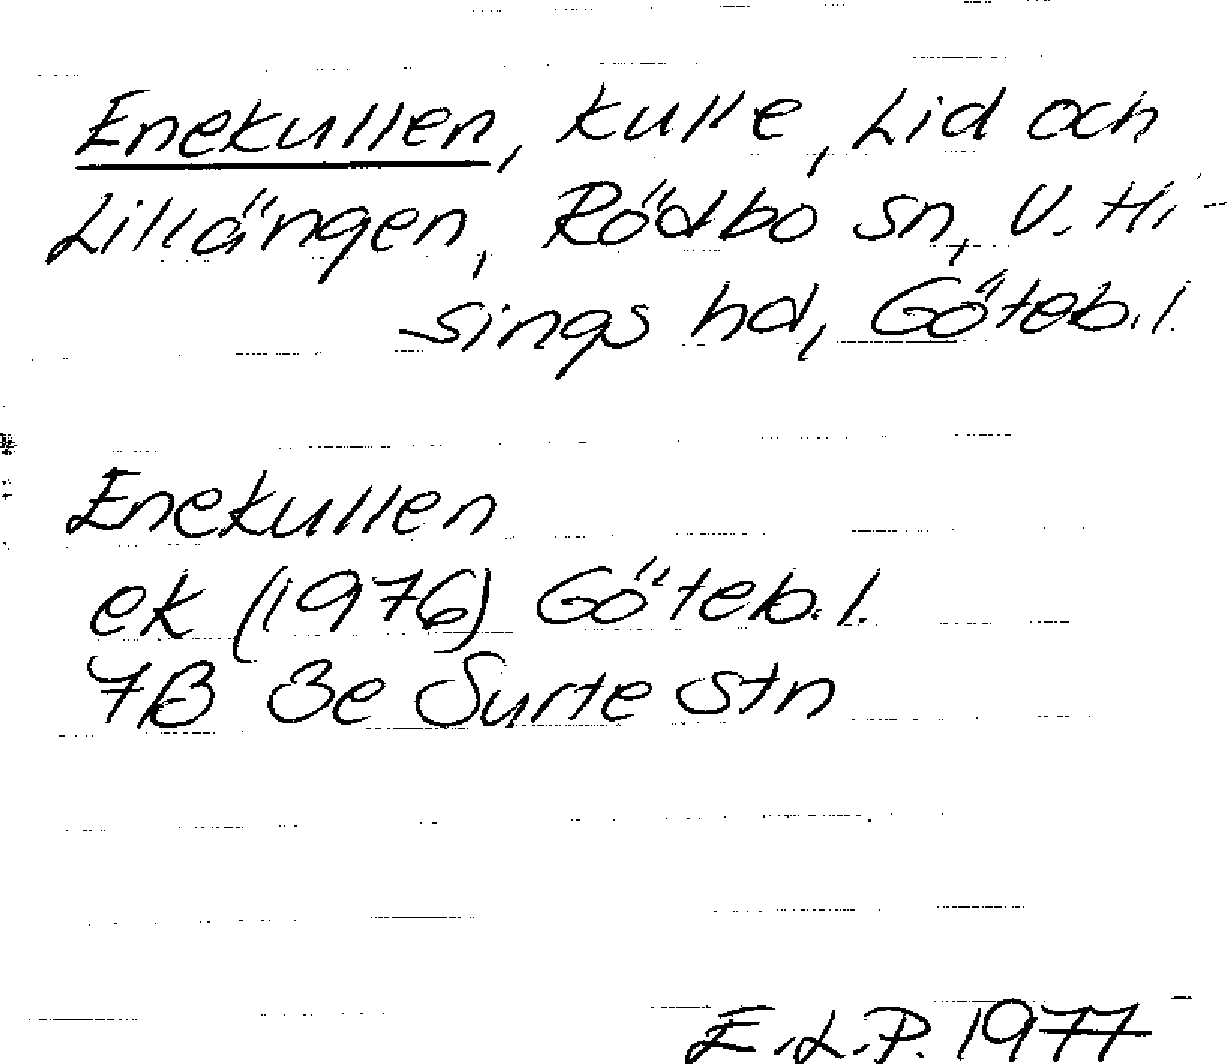 Enekullen, kulle, Lid och
Lillängen, Rödbo sn, V. Hi-
sings hd, Göteb. l.
Enekullen
ek (1976) Göteb. l.
7B 3e Surte stn
E.L.P. 1977